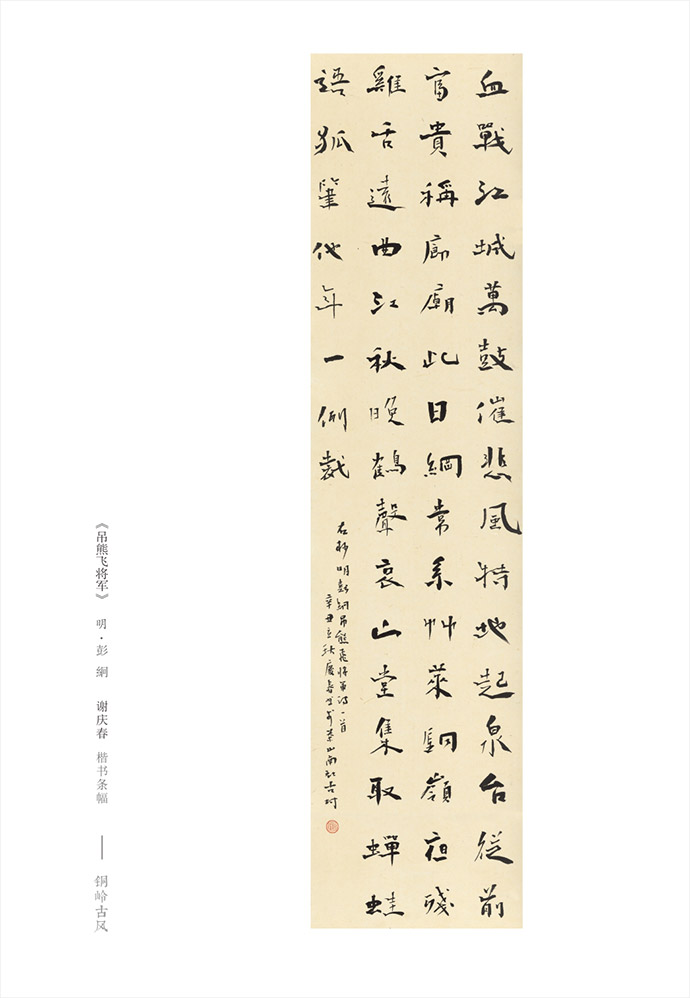 血戰江城萬鼓催悲風特地起泉台從前
富貴稱廊廟此日綱常系艸萊銅嶺夜殘
雞舌遠曲江秋晚鶴聲哀山堂集取蟬蛙
語狐筆他年一例裁
右抄明彭絅吊熊飛將軍詩一首
辛丑立秋慶春書於茶山南社古村
《吊熊飞将军》 明·彭 絅 谢庆春 楷书条幅 —— 铜岭古风